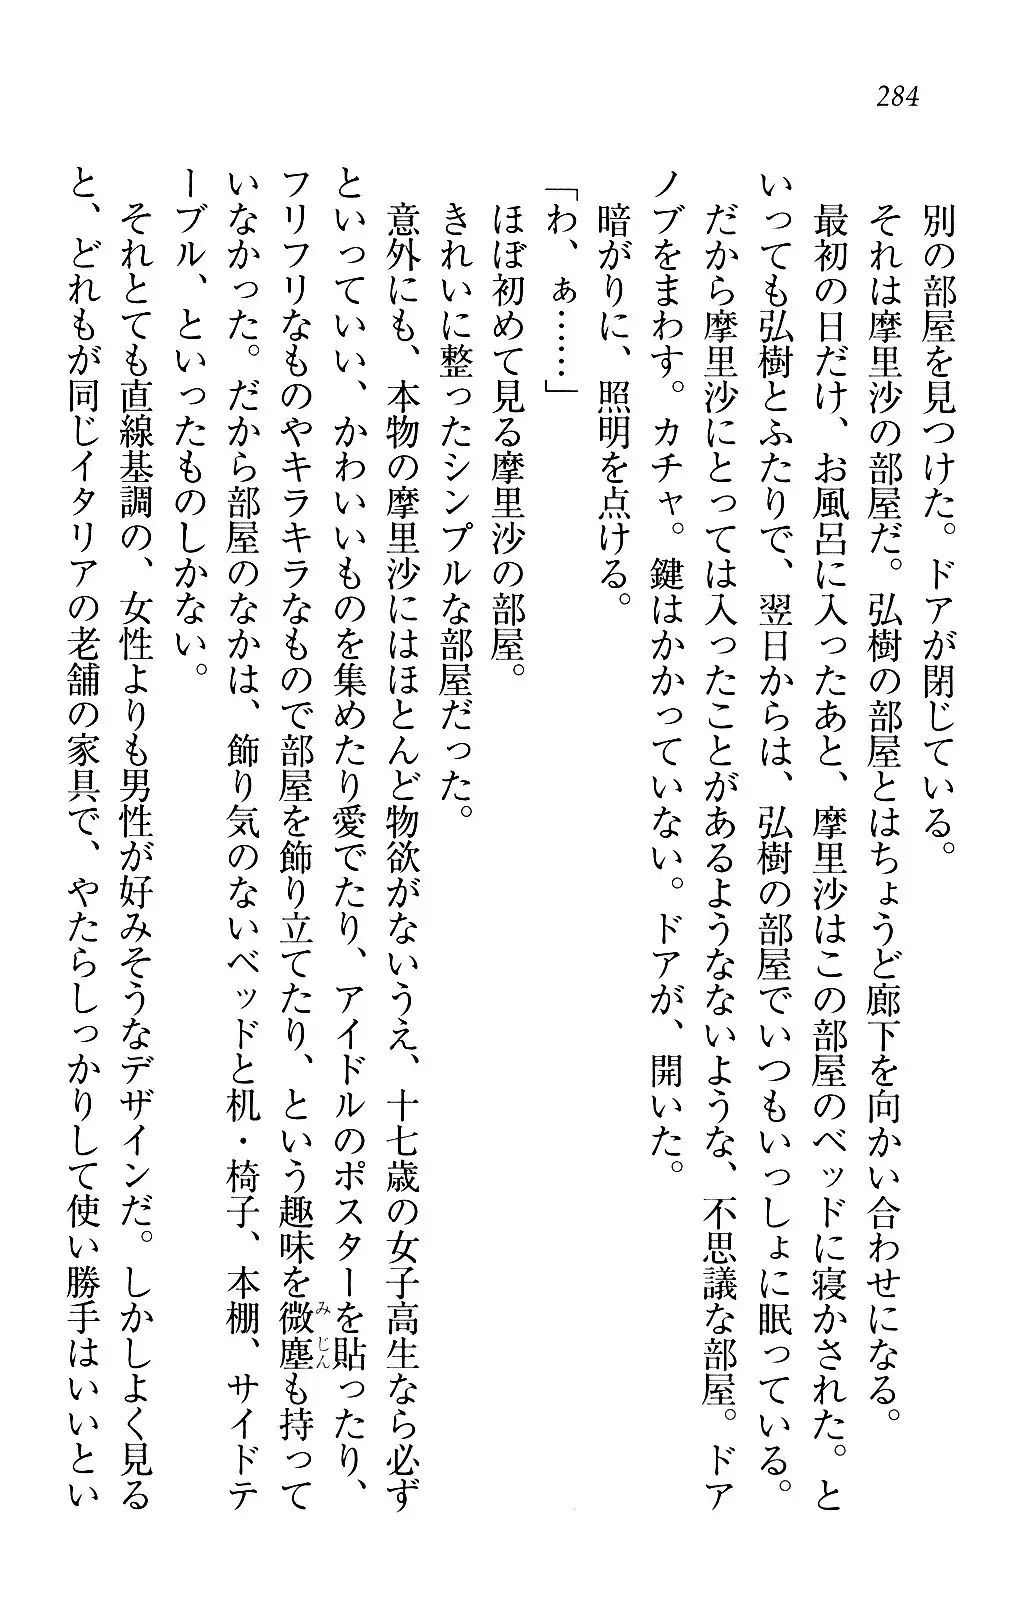 284
別の部屋を見つけた。ドアが閉じている。
それは摩里沙の部屋だ。弘樹の部屋とはちょうど廊下を向かい合わせになる。
最初の日だけ、お風呂に入ったあと、摩里沙はこの部屋のベッドに寝かされた。と
いっても弘樹とふたりで、翌日からは、弘樹の部屋でいつもいっしょに眠っている。
だから摩里沙にとっては入ったことがあるようなないような、不思議な部屋。ドア
ノブをまわす。カチャ。鍵はかかっていない。ドアが、開いた。
暗がりに、照明を点ける。
「わ、ぁ……」
ほぼ初めて見る摩里沙の部屋。
きれいに整ったシンプルな部屋だった。
意外にも、本物の摩里沙にはほとんど物欲がないうえ、十七歳の女子高生なら必ず
といっていい、かわいいものを集めたり愛でたり、アイドルのポスターを貼ったり、
フリフリなものやキラキラなもので部屋を飾り立てたり、という趣味を微塵も持って
みじん
いなかった。だから部屋のなかは、飾り気のないベッドと机・椅子、本棚、サイドテ
ーブル、といったものしかない。
それとても直線基調の、女性よりも男性が好みそうなデザインだ。しかしよく見る
と、どれもが同じイタリアの老舗の家具で、やたらしっかりして使い勝手はいいとい